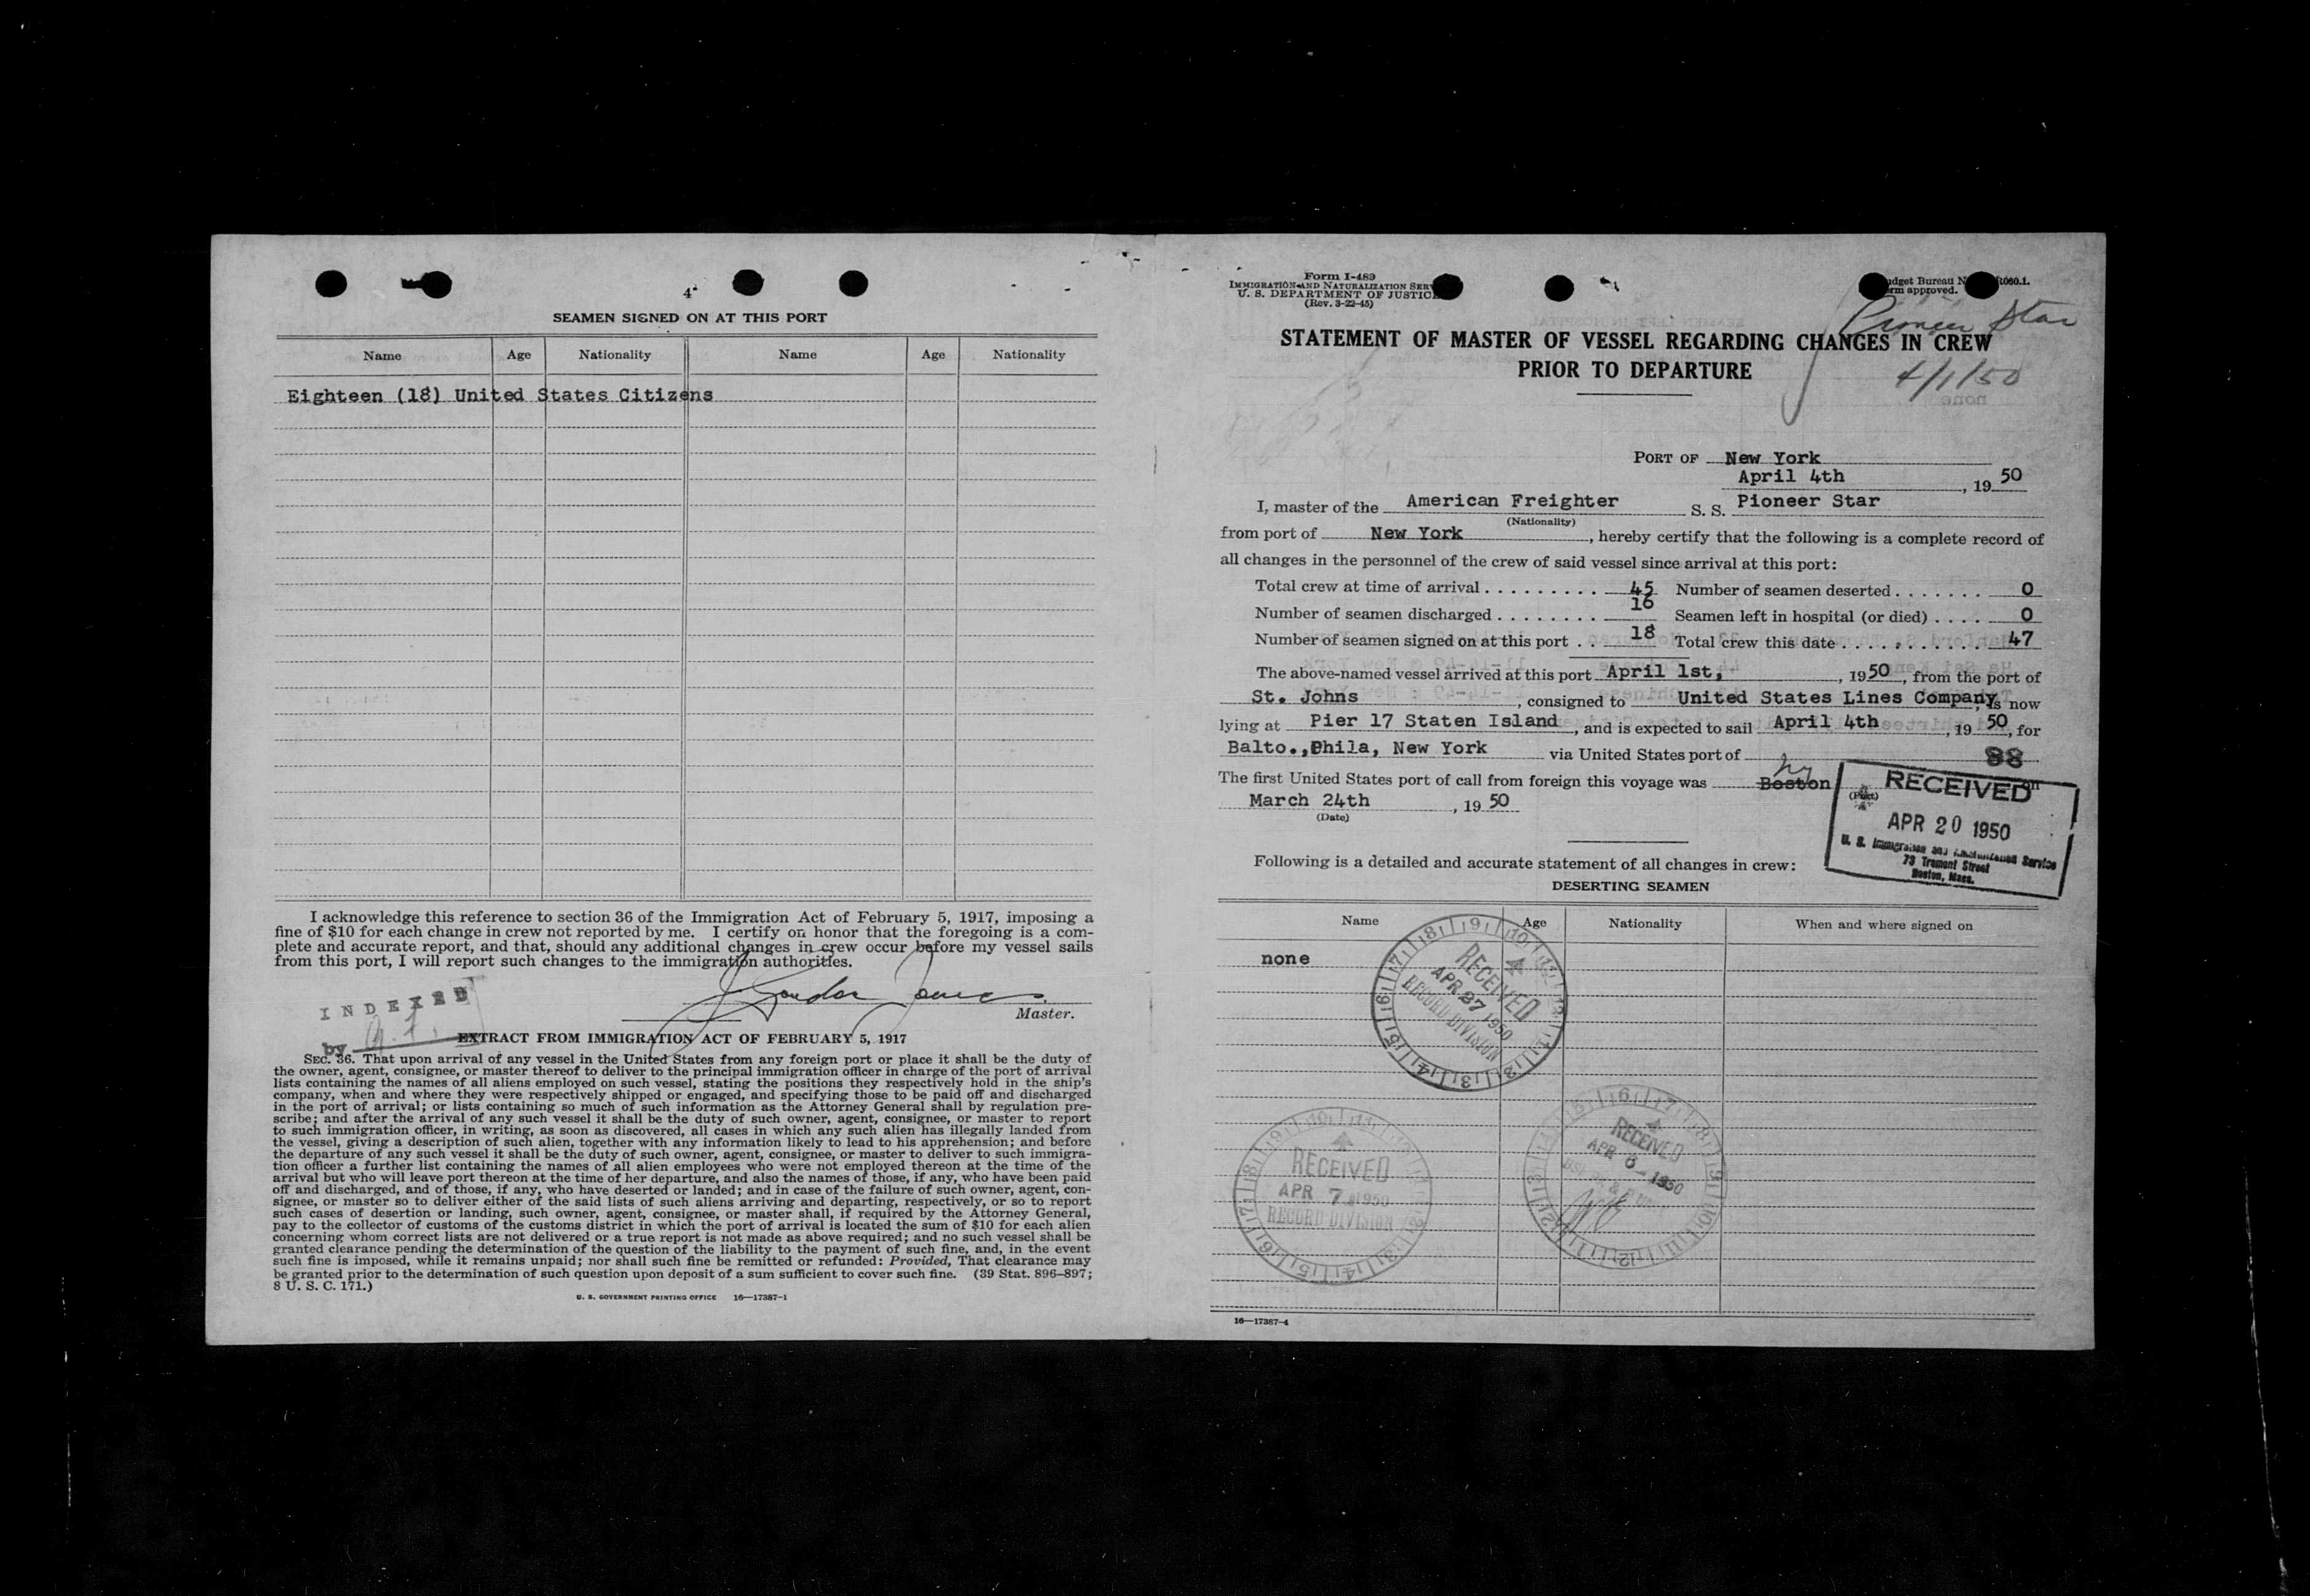 4
SEAMEN SIGNED ON AT THIS PORT
Name Age Nationality Name Age Nationality
Eighteen (18) United States Citizens
I acknowledge this reference to section 36 of the Immigration Act of February 5, 1917, imposing a
fine of $10 for each change in crew not reported by me. I certify on honor that the foregoing is a com-
plete and accurate report, and that, should any additional changes in crew occur before my vessel sails
from this port, I will report such changes to the immigration authorities.
INDEXED
Master.
by
EXTRACT FROM IMMIGRATION ACT OF FEBRUARY 5, 1917
SEC. 36. That upon arrival of any vessel in the United States from any foreign port or place it shall be the duty of
the owner, agent, consignee, or master thereof to deliver to the principal immigration officer in charge of the port of arrival
lists containing the names of all aliens employed on such vessel, stating the positions they respectively hold in the ship's
company, when and where they were respectively shipped or engaged, and specifying those to be paid off and discharged
in the port of arrival; or lists containing so much of such information as the Attorney General shall by regulation pre-
scribe; and after the arrival of any such vessel it shall be the duty of such owner, agent, consignee, or master to report
to such immigration officer, in writing, as soon as discovered, all cases in which any such alien has illegally landed from
the vessel, giving a description of such alien, together with any information likely to lead to his apprehension; and before
the departure of any such vessel it shall be the duty of such owner, agent, consignee, or master to deliver to such immigra-
tion officer a further list containing the names of all alien employees who were not employed thereon at the time of the
arrival but who will leave port thereon at the time of her departure, and also the names of those, if any, who have been paid
off and discharged, and of those, if any, who have deserted or landed; and in case of the failure of such owner, agent, con-
signee, or master so to deliver either of the said lists of such aliens arriving and departing, respectively, or so to report
such cases of desertion or landing, such owner, agent, consignee, or master shall, if required by the Attorney General,
pay to the collector of customs of the customs district in which the port of arrival is located the sum of $10 for each alien
concerning whom correct lists are not delivered or a true report is not made as above required; and no such vessel shall be
granted clearance pending the determination of the question of the liability to the payment of such fine, and, in the event
such fine is imposed, while it remains unpaid; nor shall such fine be remitted or refunded: Provided, That clearance may
be granted prior to the determination of such question upon deposit of a sum sufficient to cover such fine. (39 Stat. 896–897;
8 U. S. C. 171.)
U. S. GOVERNMENT PRINTING OFFICE 16—17387-1
Form I-489
IMMIGRATION AND NATURALIZATION SERV
U. S. DEPARTMENT OF JUSTIC
(Rev. 3-22-45)
dget Bureau N 1060.1.
rm approved.
Pioneer Star
STATEMENT OF MASTER OF VESSEL REGARDING CHANGES IN CREW
PRIOR TO DEPARTURE
4/1/50
PORT OF New York
April 4th, 19 50
I, master of the American Freighter S. S. Pioneer Star
(Nationality)
from port of New York, hereby certify that the following is a complete record of
all changes in the personnel of the crew of said vessel since arrival at this port:
Total crew at time of arrival . . . . . . . . . 45 Number of seamen deserted . . . . . . . 0
Number of seamen discharged . . . . . . . . 16 Seamen left in hospital (or died) . . . . 0
Number of seamen signed on at this port . . 18 Total crew this date . . . . . . . . . . . 47
The above-named vessel arrived at this port April 1st, , 19 50, from the port of
St. Johns, consigned to United States Lines Company, is now
lying at Pier 17 Staten Island, and is expected to sail April 4th, 19 50, for
Balto.,Phila, New York via United States port of
88
The first United States port of call from foreign this voyage was Boston ny on
(Port)
March 24th, 19 50
(Date)
RECEIVED
APR 20 1950
U. S. Immigration and Naturalization Service
73 Tremont Street
Boston, Mass.
Following is a detailed and accurate statement of all changes in crew:
DESERTING SEAMEN
Name Age Nationality When and where signed on
none
RECEIVED
APR 27 1950
RECORD DIVISION
RECEIVED
APR 7 1950
RECORD DIVISION
RECEIVED
APR 6 1950
16—17387-4